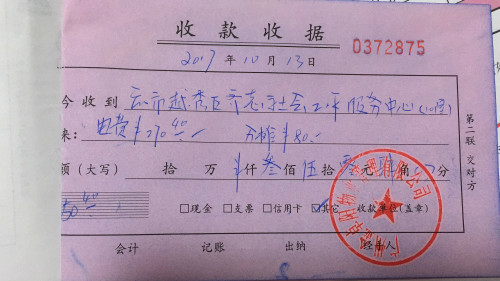 收款收据
2017年10月13日 0372875
今收到 市越秀区 社会工作服务中心
来: 电费¥270.40 分摊¥80.-
额(大写) 拾 万 ¥仟叁佰伍拾零元肆角 分
50.40 □现金 □支票 □信用卡 ☑其它 收款单位(盖章)
会计 记账 出纳 经手人
第二联 交对方
广州 有限公司